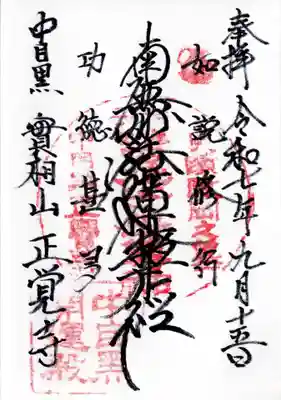 奉拝 令和七年九月十五日
如説修行
南無妙法蓮華経
功徳甚多
中目黒 實相山 正覚寺
中目黒